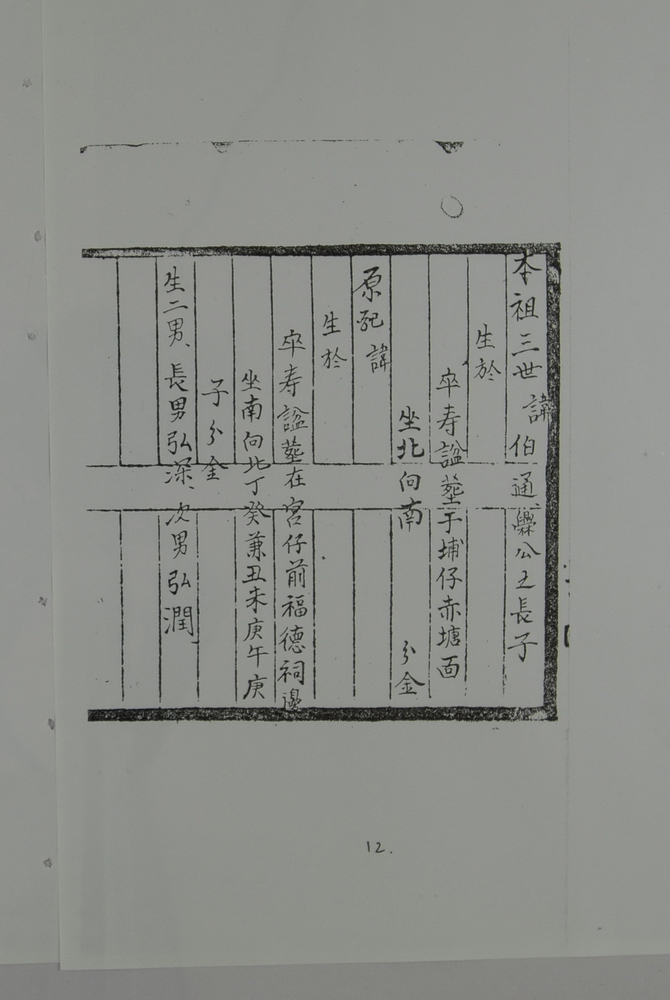 本祖三世 諱伯通 公之長子
生於
卒寿諡葬于埔仔赤塘面
坐北向南 分金
原配 諱
生於
卒寿諡葬在宮仔前福德祠邊
坐南向北丁癸兼丑未庚午庚
子分金
生二男、長男弘深、次男弘潤
12.